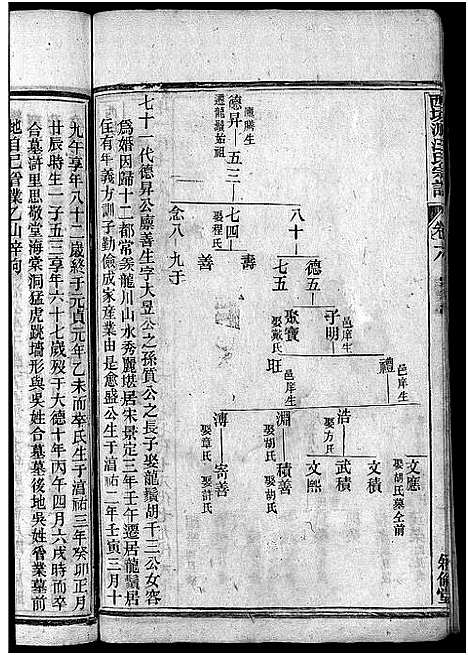 汪氏宗譜
卷六
德昇
廩膳生
遷龍鬚始祖
五三
八十
七四
娶程氏
念八
九于
壽
善
德五
七五
邑庠生
子明
聚寶
娶戴氏
邑庠生
禮
旺
浩
娶方氏
淵
娶胡氏
溥
娶章氏
文應
娶胡氏墓全前
文積
武積
文熙
積善
寄善
娶許氏
敘倫堂
七十一代德昇公廩善生字大昱公之孫質公之長子娶龍鬚胡千三公女容
爲婚因歸十二都常羨龍川山水秀麗堪居宋景定三年壬午遷居龍鬚居
住有年義方訓子勤儉成家産業由是愈盛公生于淳祐二年壬寅三月十
九午享年八十二歲終于元貞元年乙未而卒氏生于淳祐三年癸卯正月
廿辰時生一子五三享年六十七歲歿于大德十年丙午四月六戌時而卒
合墓滸里思敬堂海棠洞猛虎跳墻形與吳姓合墓墓後地吳姓晉業墓前
地自己晉業乙山辛向